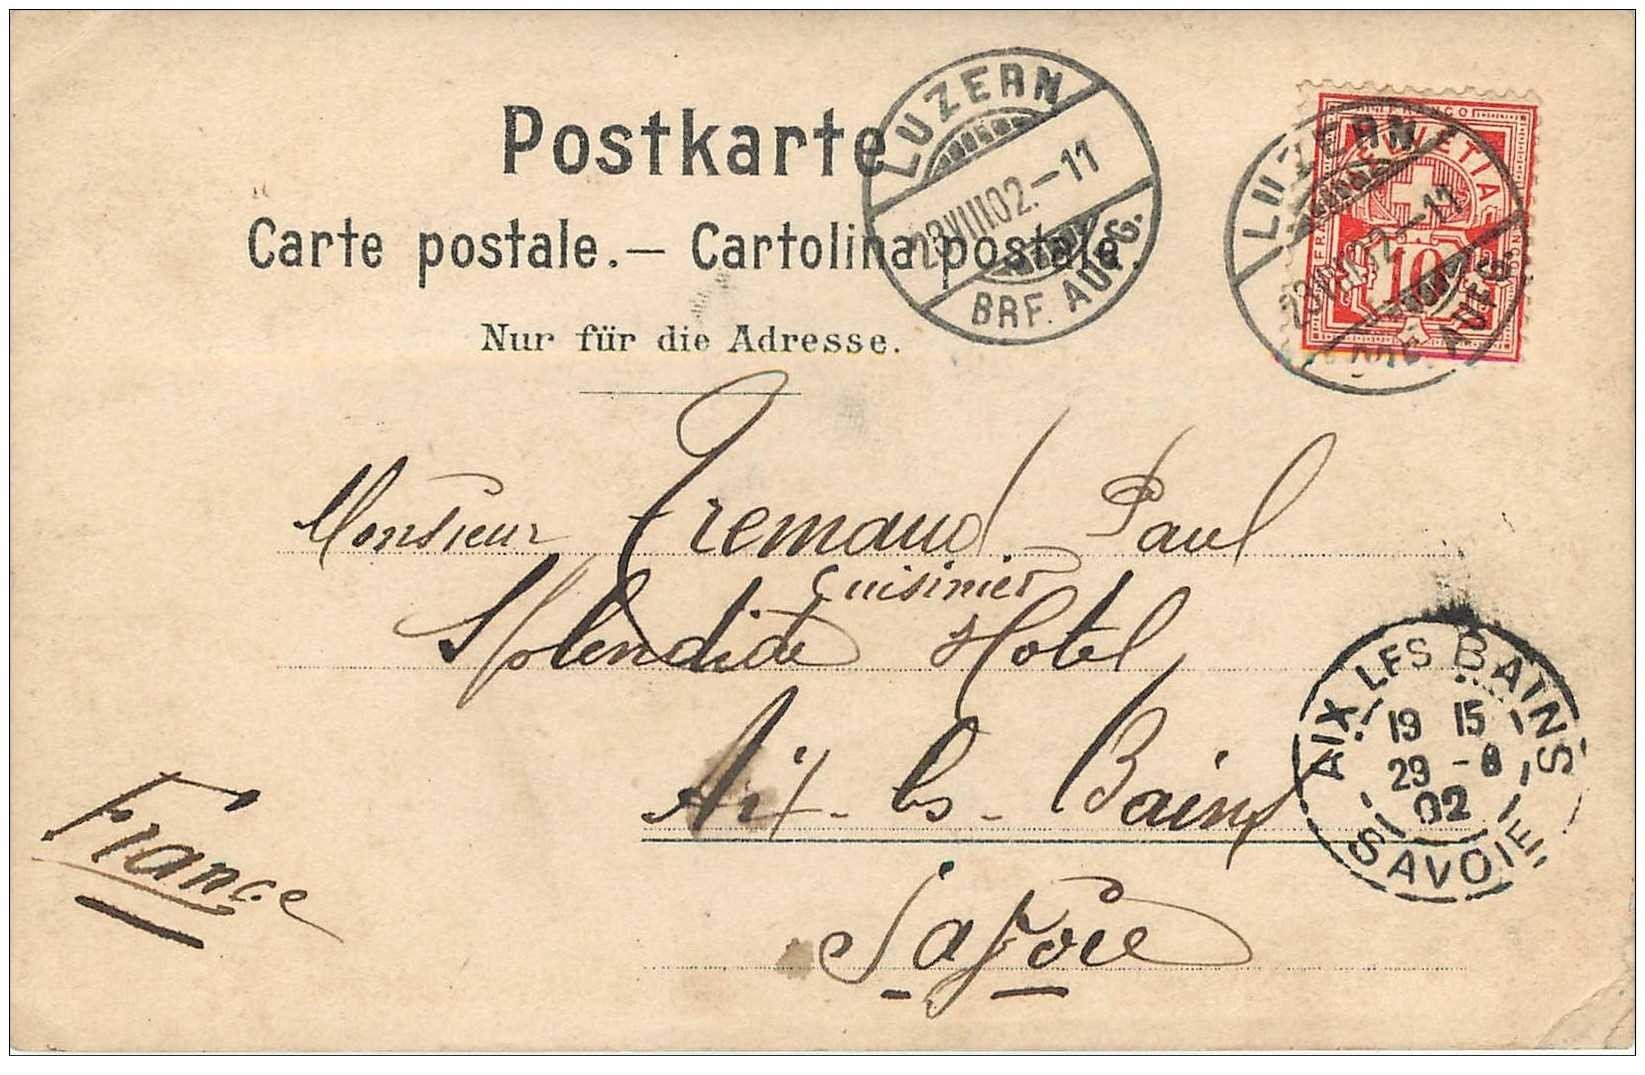 Postkarte
Carte postale.— Cartolina postale.
Nur für die Adresse.
LUZERN
23.VIII.02.-11
BRF. AUFG.
FRANCO
HELVETIA
10
LUZERN
23.VIII.02.-11
BRF. AUFG.
Monsieur Tremaud Paul
Cuisinier
Splendide Hotel
Aix-les-Bains
Savoie
France
AIX LES BAINS
19 15
29 - 8
02
SAVOIE